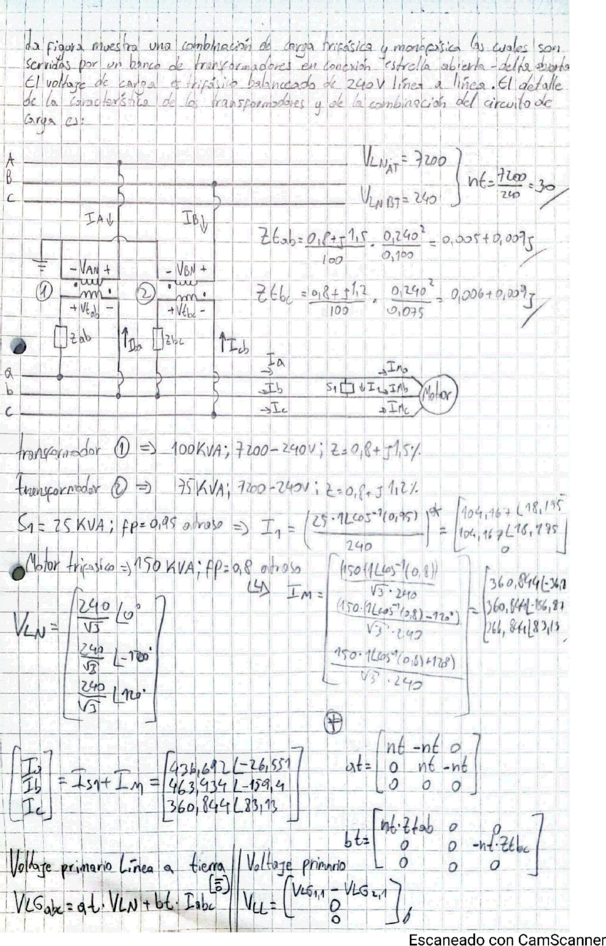 La figura muestra una combinación de carga trifásica y monofásica las cuales son
servidas por un banco de transformadores en conexión "estrella abierta-delta abierta
El voltaje de carga es trifásico balanceado de 240V línea a línea. El detalle
de la característica de los transformadores y de la combinación del circuito de
carga es:
A
B
C
VLN AT = 7200
VLN BT = 240
nt = 7200/240 = 30
IA↓ IB↓
Ztab = (0,8+j1,5)/100 · 0,240²/0,100 = 0,005+0,009j
- VAN + - VBN +
① ②
+ Vtab - + Vtbc -
Ztbc = (0,8+j1,2)/100 · 0,240²/0,075 = 0,006+0,009j
Zab ↑Iba Zbc ↑Icb
a Ia Ima
b Ib S1 ↓I1 IMb Motor
c Ic IMc
transformador ① => 100KVA; 7200-240V; Z=0,8+j1,5%
transformador ② => 75KVA; 7200-240V; Z=0,8+j1,2%
S1 = 25 KVA; fp=0,95 atraso => I1 = (25·1∟cos⁻¹(0,95) / 240)* =
Motor trifasico => 150 KVA; fp=0,8 atraso
IM = [150·1∟cos⁻¹(0,8) / √3·240
(150·1∟cos⁻¹(0,8)-120°) / √3·240
150·1∟cos⁻¹(0,8)+120°) / √3·240]
VLN = [240/√3 ∟0°
240/√3 ∟-120°
240/√3 ∟120°]
[Ia Ib Ic] = Is1 + IM = [436,692∟-26,551
463,434∟-159,4
360,844∟83,13]
at = [nt -nt 0
0 nt -nt
0 0 0]
bt = [nt·Ztab 0 0
0 0 -nt·Ztbc
0 0 0]
Voltaje primario Línea a tierra
VLGabc = at·VLN + bt·Iabc
Voltaje primario
VLL = [VLG1,1 - VLG2,1
0
0]
Escaneado con CamScanner